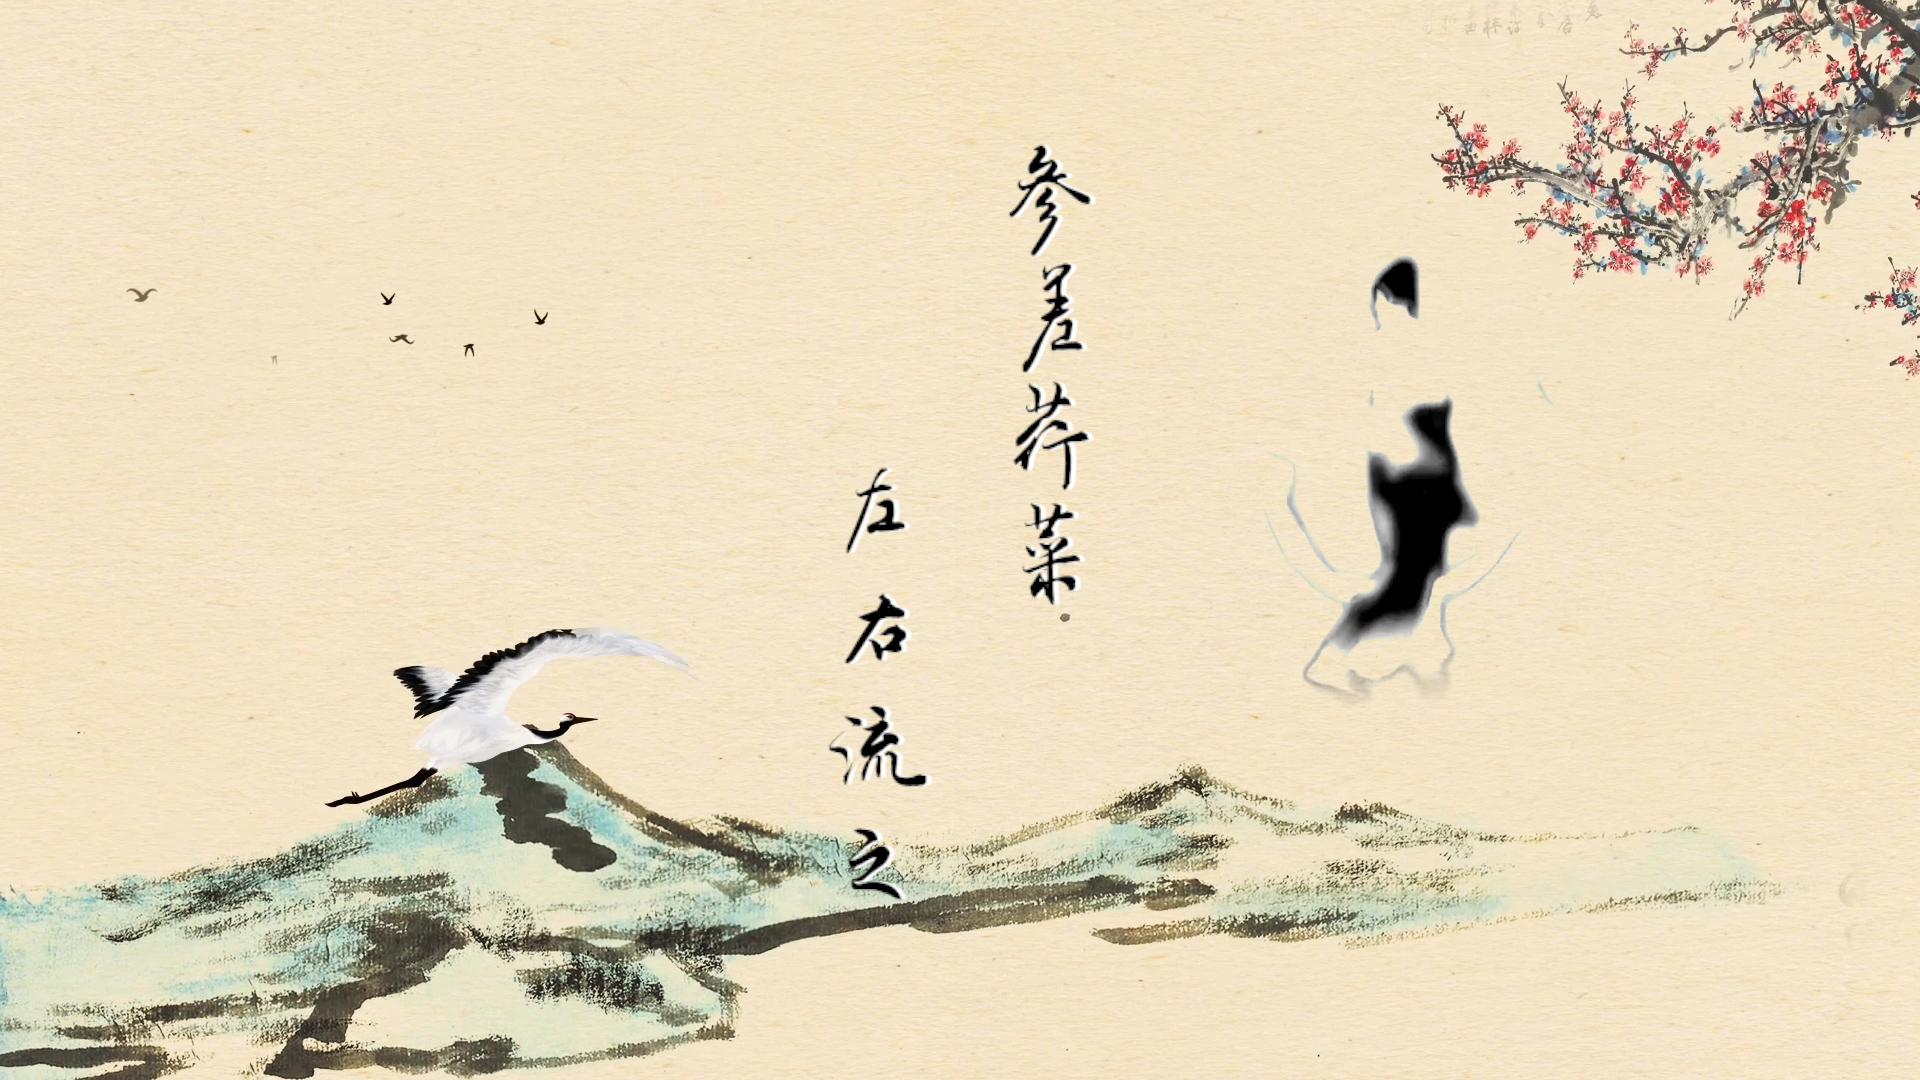 参差荇菜
左右流之